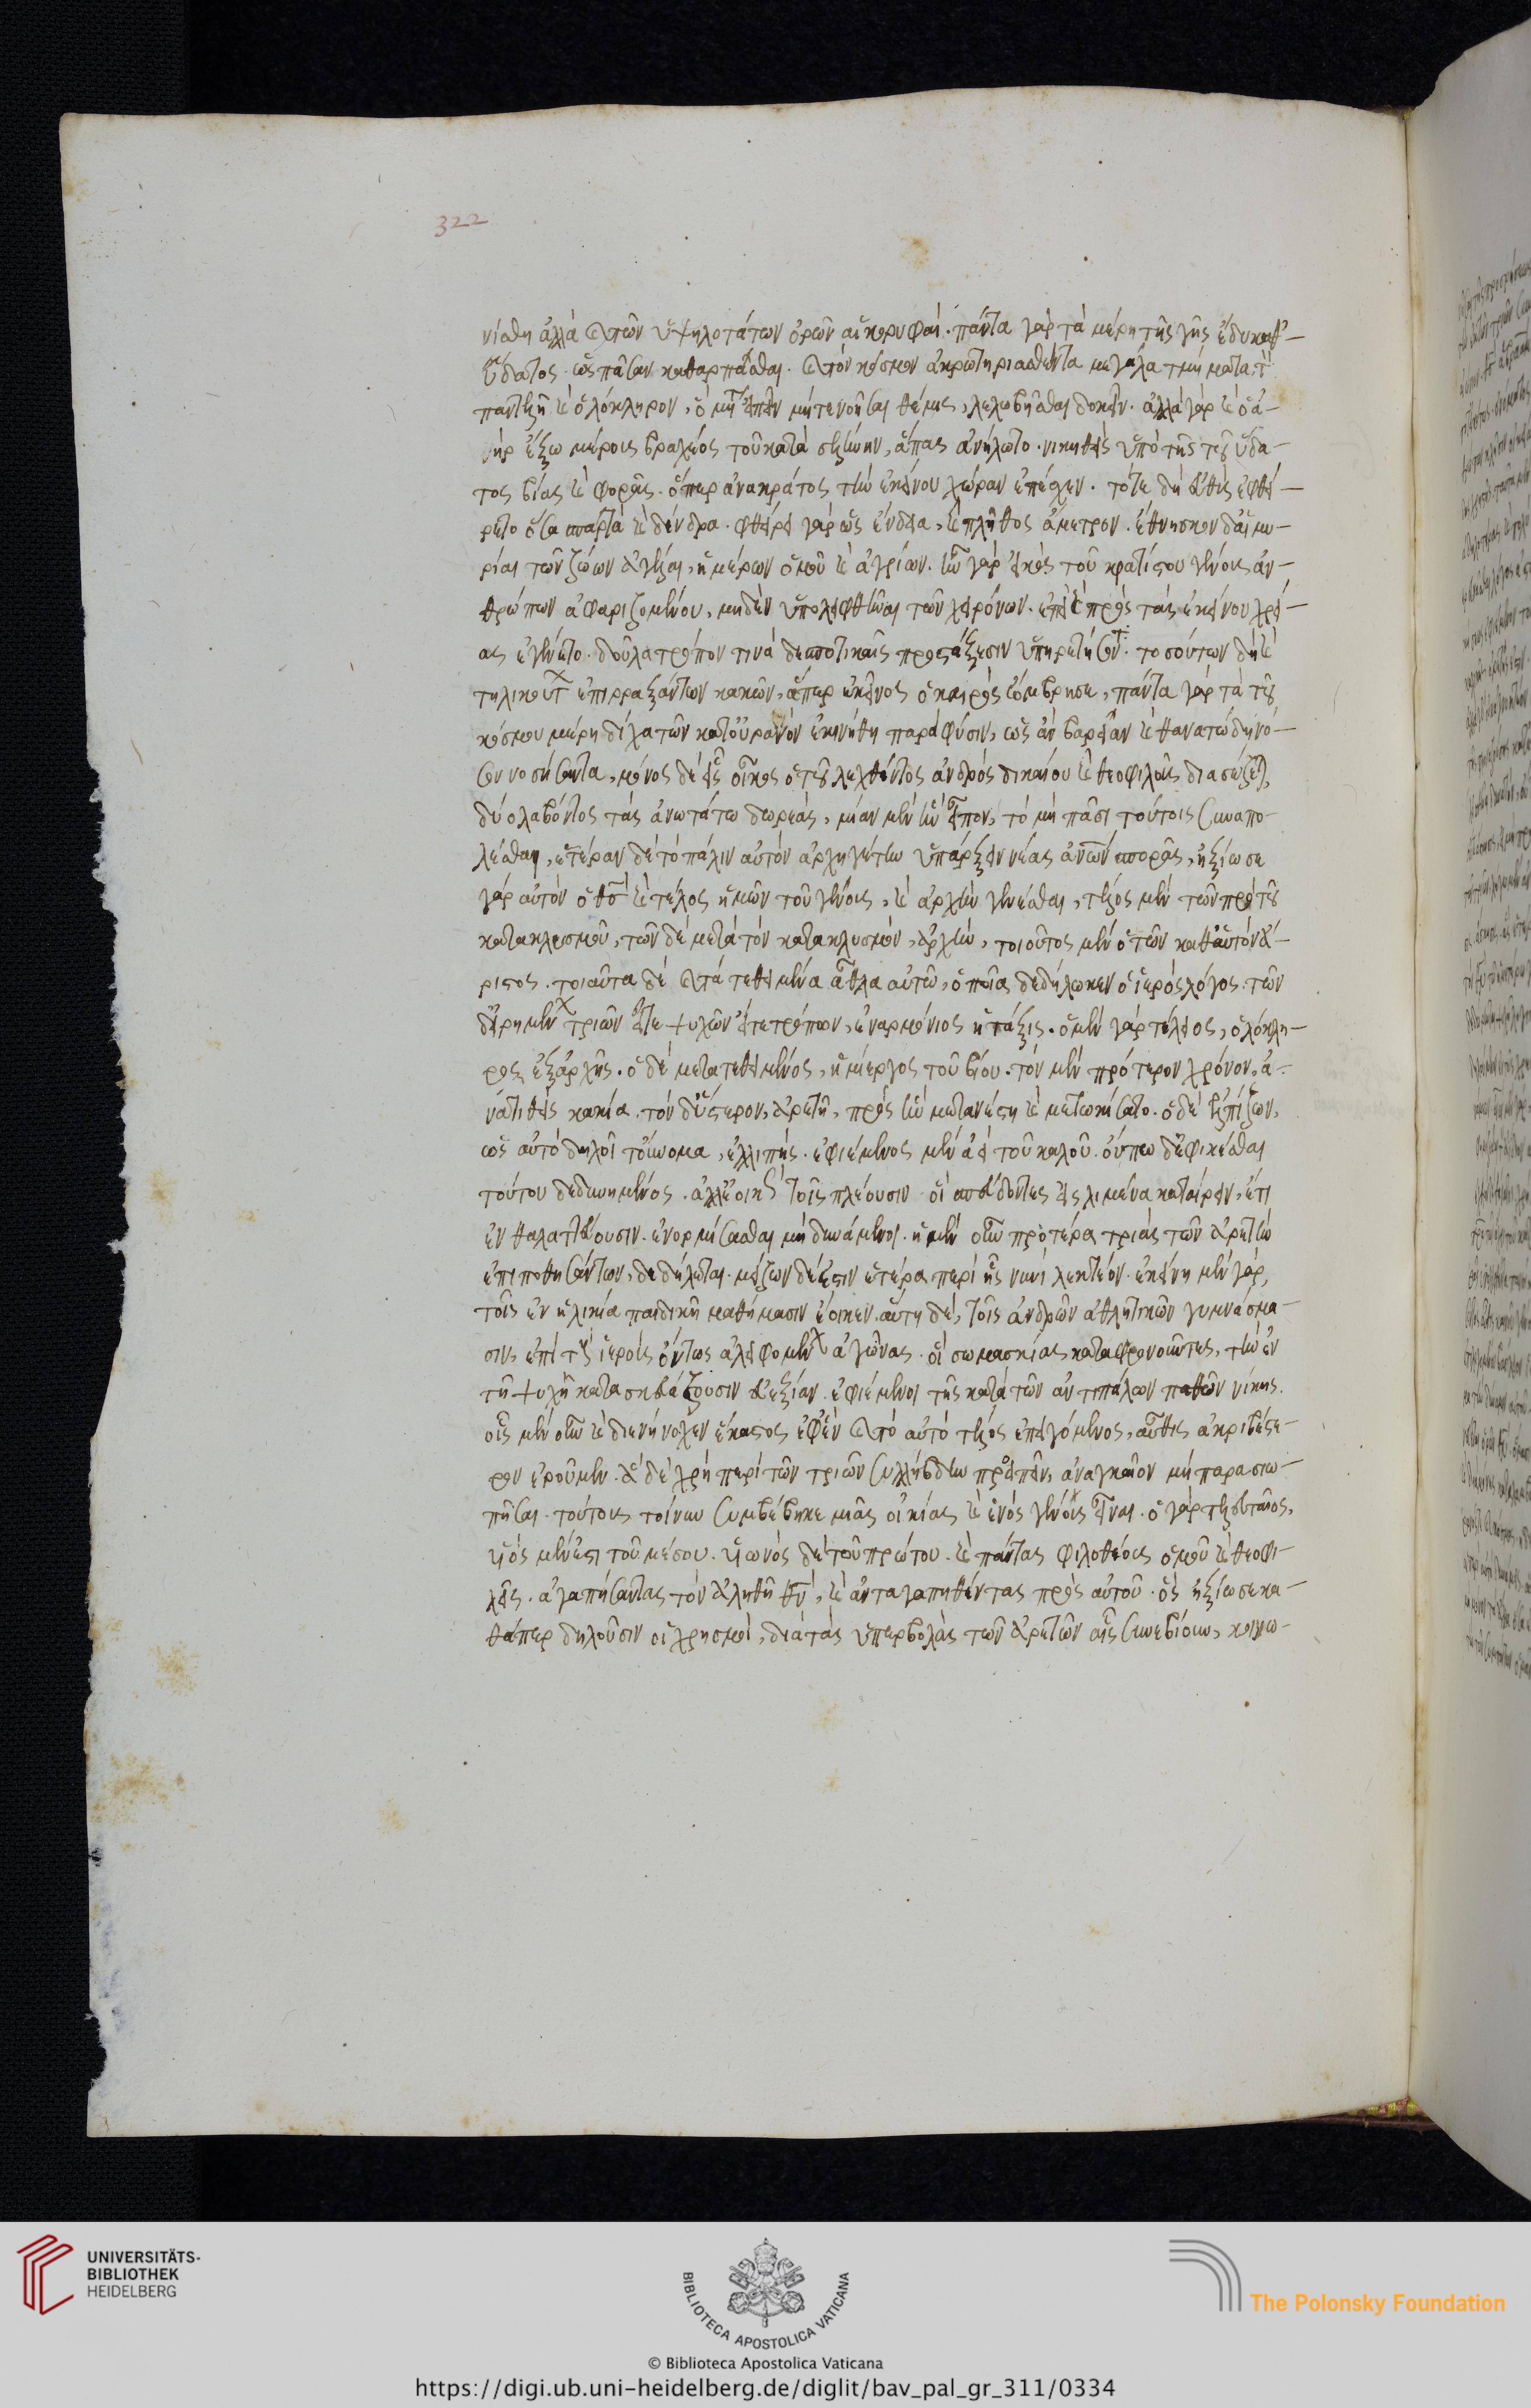 322
νίσθη ἀλλὰ καὶ τῶν ὑψηλοτάτων ὀρῶν αἱ κορυφαί. πάντα γὰρ τὰ μέρη τῆς γῆς ἔδυ καθ᾽
ὕδατος. ὡς πᾶσαν καθαρπάσθαι. καὶ τὸν κόσμον ἀκρωτηριασθέντα μεγάλα τμήματα, τὸν
παντελῆ καὶ ὁλόκληρον, ὃ μήτ᾽ εἰπεῖν μήτε νοῆσαι θέμις, λελωβῆσθαι δοκεῖν. ἀλλὰ γὰρ καὶ ὁ ἀ-
ὴρ ἔξω μέρους βραχέος τοῦ κατὰ σελήνην, ἅπας ἀνήλωτο. νικηθεὶς ὑπὸ τῆς τοῦ ὕδα-
τος βίας καὶ φορᾶς. ὅπερ ἀνακράτος τὴν ἐκείνου χώραν ἐπέσχεν. τότε δὴ εὐθὺς ἐφθεί-
ρετο ὅσα σπαρτὰ καὶ δένδρα. φθείρει γὰρ ὡς ἔνδεια, καὶ πλῆθος ἄμετρον. ἔθνησκον δ᾽ αἱ μυ-
ρίαι τῶν ζώων ἀγέλαι, ἡμέρων ὁμοῦ καὶ ἀγρίων. ἦν γὰρ εἰκὸς τοῦ κρατίστου γένους ἀν-
θρώπων ἀφανιζομένου, μηδὲν ὑπολειφθῆναι τῶν χειρόνων. ἐπεὶ καὶ πρὸς τὰς ἐκείνου χρεί-
ας ἐγένετο. δοῦλα τρόπον τινὰ δεσποτικαῖς προστάξεσιν ὑπηρετήσοντα. τοσούτων δὴ καὶ
τηλικούτων ἐπιρραξάντων κακῶν, ἅπερ ἐκεῖνος ὁ καιρὸς ὤμβρησε, πάντα γὰρ τὰ τοῦ
κόσμου μέρη δίχα τῶν κατ᾽ οὐρανὸν ἐκινήθη παρὰ φύσιν, ὡς ἂν βαρεῖαν καὶ θανατώδη νό-
σον νοσήσαντα, μόνος δὲ εἷς οἶκος ὁ τοῦ λεχθέντος ἀνδρὸς δικαίου καὶ θεοφιλοῦς διασώζεται,
δύο λαβόντος τὰς ἀνωτάτω δωρεάς, μίαν μὲν ἣν εἶπον, τὸ μὴ πᾶσι τούτοις συναπο-
λέσθαι, ἑτέραν δὲ τὸ πάλιν αὐτὸν ἀρχηγέτην ὑπάρξειν νέας ἀνθρώπων σπορᾶς, ἠξίωσε
γὰρ αὐτὸν ὁ θεὸς καὶ τέλος ἡμῶν τοῦ γένους, καὶ ἀρχὴν γενέσθαι, τέλος μὲν τῶν πρὸ τοῦ
κατακλυσμοῦ, τῶν δὲ μετὰ τὸν κατακλυσμὸν, ἀρχήν, τοιοῦτος μὲν ὁ τῶν καθ᾽ αὑτὸν ἄ-
ριστος. τοιαῦτα δὲ καὶ τὰ τεθειμένα ἆθλα αὐτῷ, ὁποῖα δεδήλωκεν ὁ ἱερὸς λόγος. τῶν
δ᾽ εἰρημένων τριῶν εἴτε ψυχῶν εἴτε τρόπων, ἐναρμόνιος ἡ τάξις. ὁ μὲν γὰρ τέλειος, ὁλόκλη-
ρος ἐξαρχῆς. ὁ δὲ μετατεθειμένος, ἡμίεργος τοῦ βίου. τὸν μὲν πρότερον χρόνον, ἀ-
νατιθεὶς κακία. τὸν δ᾽ ὕστερον, ἀρετῇ, πρὸς ἣν μετανέστη καὶ μετωκίσατο. ὁ δὲ ἐλπίζων,
ὡς αὐτὸ δηλοῖ τοὔνομα, ἐλλιπής. ἐφιέμενος μὲν ἀεὶ τοῦ καλοῦ. οὔπω δ᾽ ἐφικέσθαι
τούτου δεδυνημένος. ἀλλ᾽ ἐοικὼς τοῖς πλέουσιν οἳ σπεύδοντες εἰς λιμένα καταίρειν, ἔτι
ἐνθαλαττεύουσιν. ἐνορμίσασθαι μὴ δυνάμενοι. ἡ μὲν οὖν προτέρα τριὰς τῶν ἀρετὴν
ἐπιποθησάντων, δεδήλωται. μείζων δέ ἐστιν ἑτέρα περὶ ἧς νυνὶ λεκτέον. ἐκείνη μὲν γὰρ,
τοῖς ἐν ἡλικία παιδικῇ μαθήμασιν ἔοικεν. αὕτη δὲ, τοῖς ἀνδρῶν ἀθλητικῶν γυμνάσμα-
σιν, ἐπὶ τοὺς ἱεροὺς ὄντως ἀλειφομένων ἀγῶνας. οἳ σωμασκίας καταφρονοῦντες, τὴν ἐν
τῇ ψυχῇ κατασκευάζουσιν εὐεξίαν. ἐφιέμενοι τῆς κατὰ τῶν ἀντιπάλων παθῶν νίκης.
οἷς μὲν οὖν καὶ διενήνοχεν ἕκαστος ἐφ᾽ ἓν καὶ τὸ αὐτὸ τέλος ἐπειγόμενος, αὖθις ἀκριβέστε-
ρον ἐροῦμεν. ἃ δὲ χρὴ περὶ τῶν τριῶν συλλήβδην προειπεῖν, ἀναγκαῖον μὴ παρασιω-
πῆσαι. τούτους τοίνυν συμβέβηκε μιᾶς οἰκίας καὶ ἑνὸς γένους εἶναι. ὁ γὰρ τελευταῖος,
υἱὸς μέν ἐστι τοῦ μέσου. υἱωνὸς δὲ τοῦ πρώτου. καὶ πάντας φιλοθέους ὁμοῦ καὶ θεοφι-
λεῖς. ἀγαπήσαντας τὸν ἀληθῆ θεόν, καὶ ἀνταγαπηθέντας πρὸς αὐτοῦ. ὃς ἠξίωσε κα-
θάπερ δηλοῦσιν οἱ χρησμοί, διὰ τὰς ὑπερβολὰς τῶν ἀρετῶν αἷς συνεβίουν, κοινω-
UNIVERSITÄTS-
BIBLIOTHEK
HEIDELBERG
BIBLIOTECA APOSTOLICA VATICANA
The Polonsky Foundation
© Biblioteca Apostolica Vaticana
https://digi.ub.uni-heidelberg.de/diglit/bav_pal_gr_311/0334